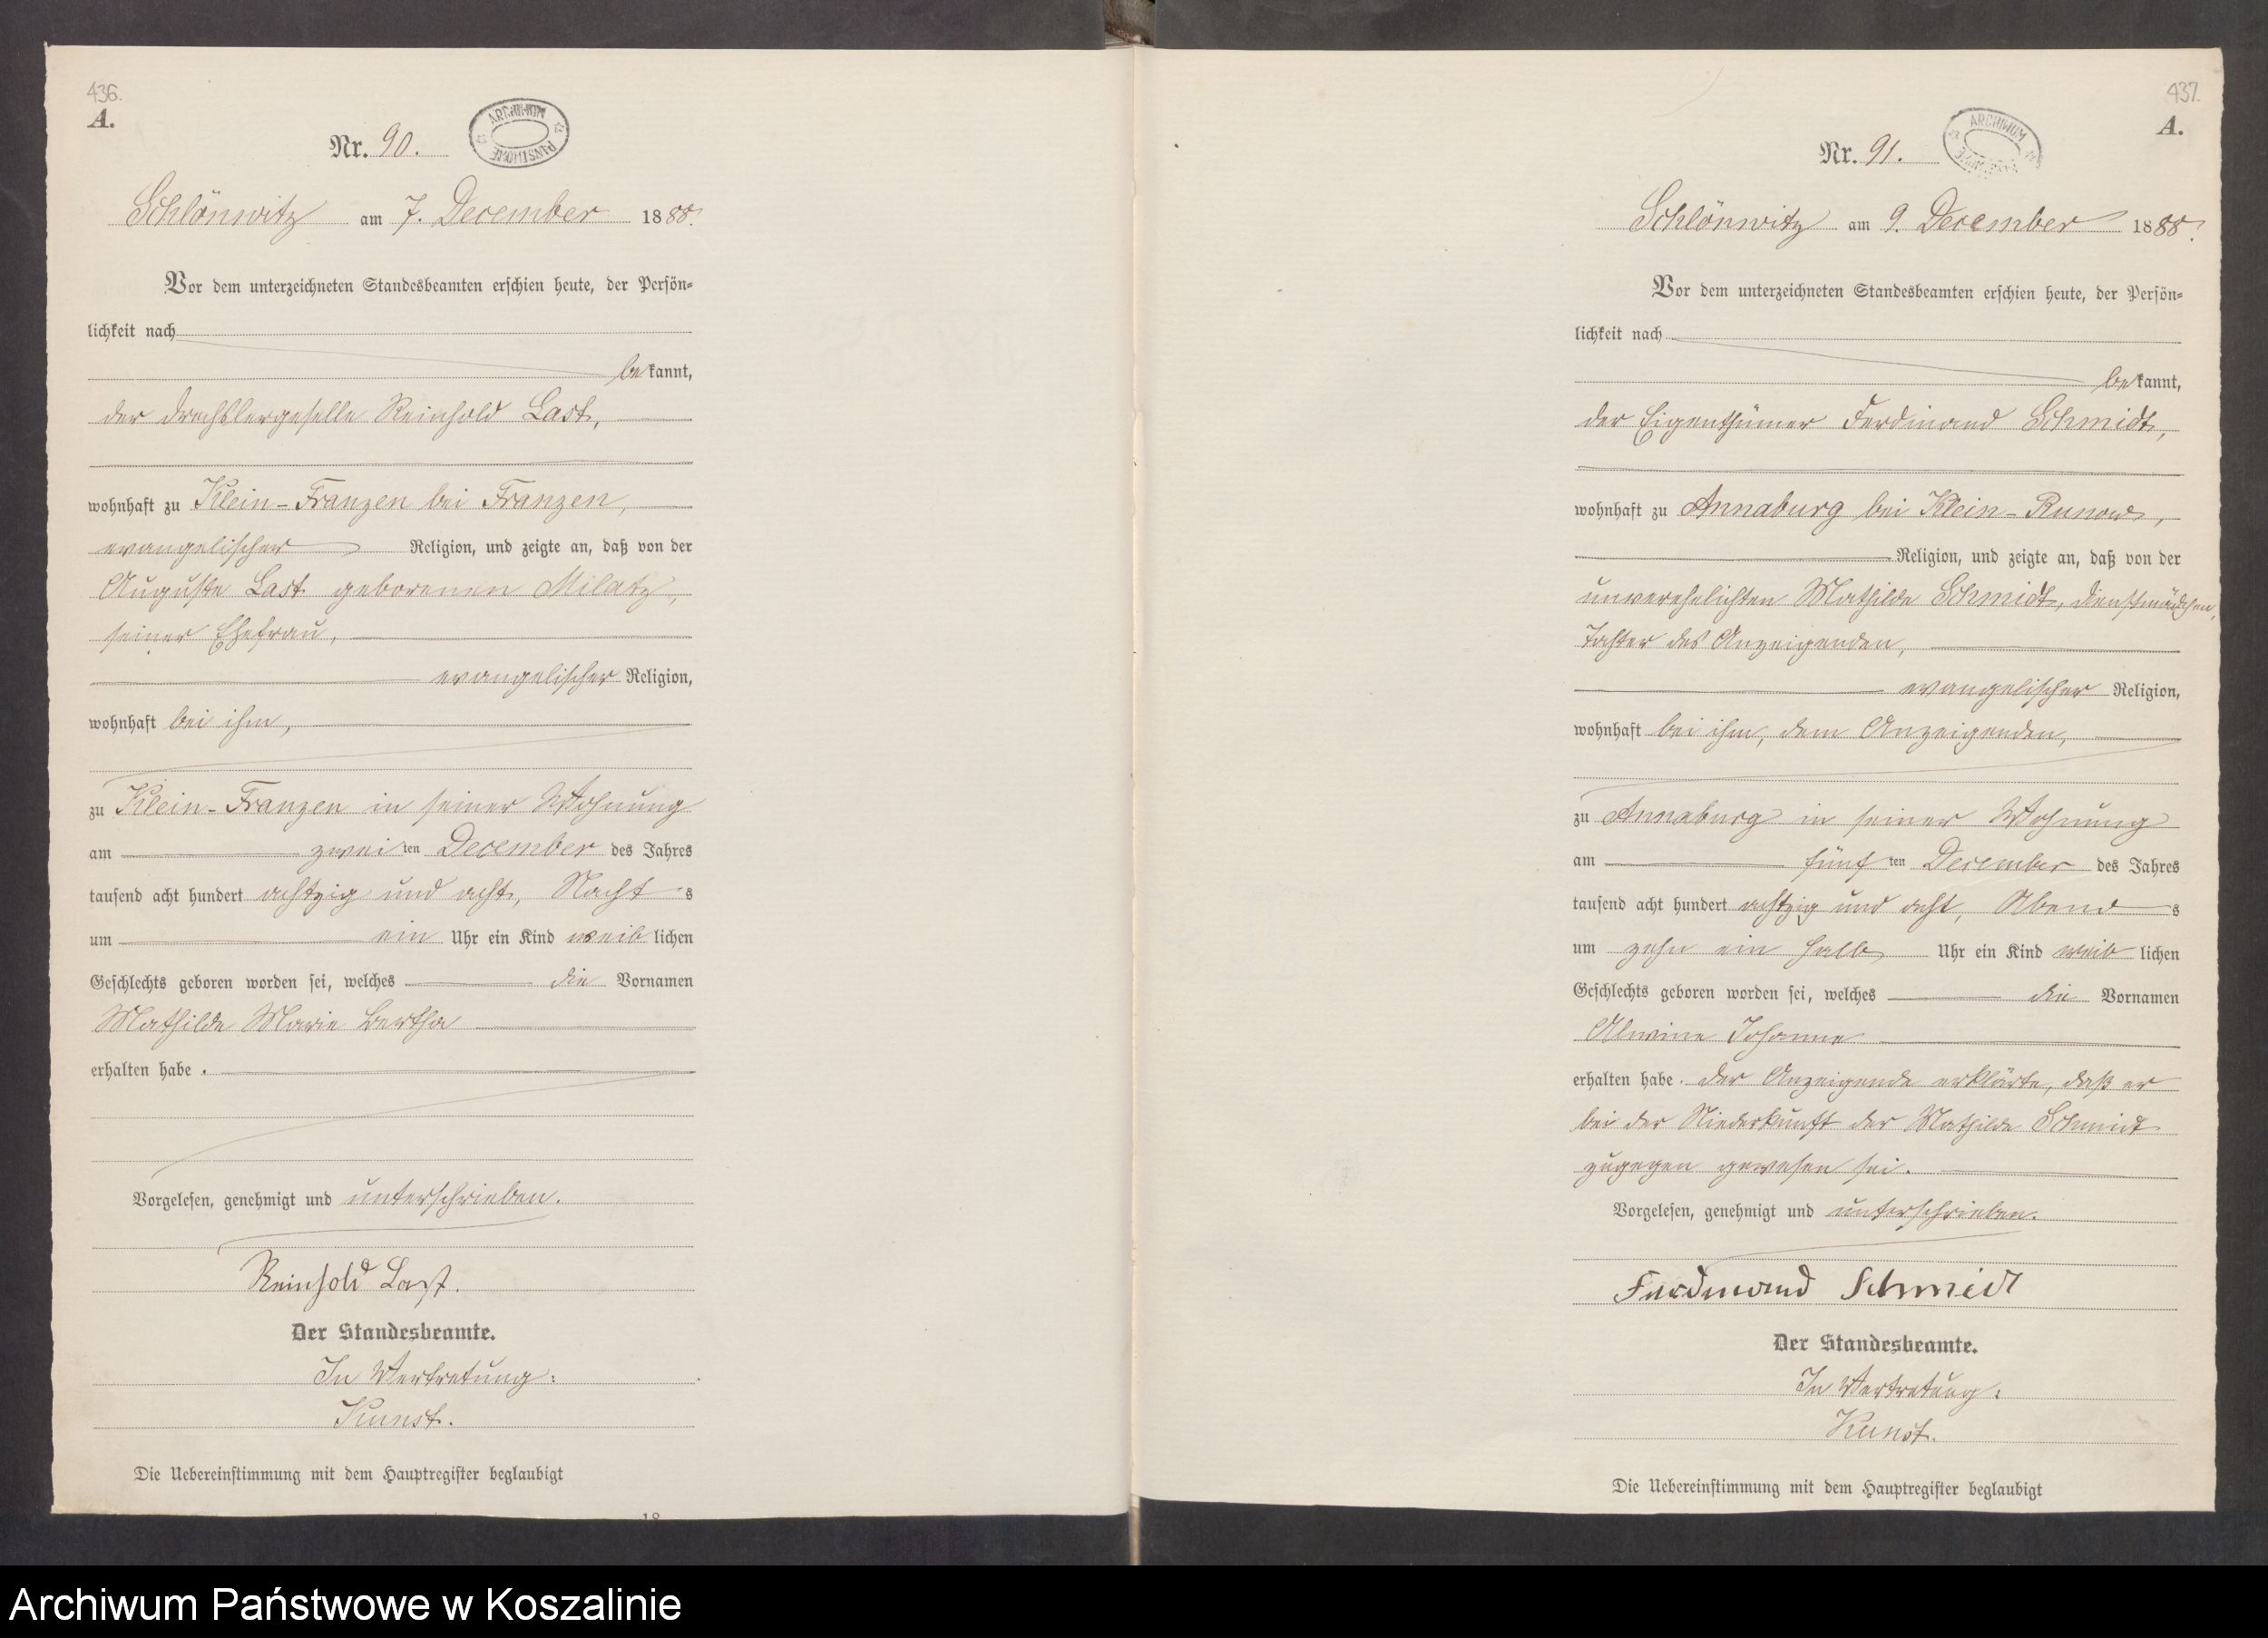 436.
A.
ARCHIWUM PAŃSTWOWE
Nr. 90.
Schlönwitz am 7. December 1888.
Vor dem unterzeichneten Standesbeamten erschien heute, der Persön=
lichkeit nach
bekannt,
der Drechslergeselle Reinhold Last,
wohnhaft zu Klein-Franzen bei Franzen,
evangelischer Religion, und zeigte an, daß von der
Auguste Last geborenen Milatz,
seiner Ehefrau,
evangelischer Religion,
wohnhaft bei ihm,
zu Klein-Franzen in seiner Wohnung
am zweiten December des Jahres
tausend acht hundert achtzig und acht, Nachts
um ein Uhr ein Kind weiblichen
Geschlechts geboren worden sei, welches die Vornamen
Mathilde Marie Bertha
erhalten habe.
Vorgelesen, genehmigt und unterschrieben.
Reinhold Last.
Der Standesbeamte.
In Vertretung:
Kunst.
Die Uebereinstimmung mit dem Hauptregister beglaubigt
437.
A.
ARCHIWUM
Nr. 91.
Schlönwitz am 9. December 1888.
Vor dem unterzeichneten Standesbeamten erschien heute, der Persön=
lichkeit nach
bekannt,
der Eigenthümer Ferdinand Schmidt,
wohnhaft zu Annaburg bei Klein-Runow,
Religion, und zeigte an, daß von der
unverehelichten Mathilde Schmidt, Dienstmädchen,
Tochter des Anzeigenden,
evangelischer Religion,
wohnhaft bei ihm, dem Anzeigenden,
zu Annaburg in seiner Wohnung
am fünften December des Jahres
tausend acht hundert achtzig und acht, Abends
um zehn ein halb Uhr ein Kind weiblichen
Geschlechts geboren worden sei, welches die Vornamen
Alwine Johanne
erhalten habe. Der Anzeigende erklärte, daß er
bei der Niederkunft der Mathilde Schmidt
zugegen gewesen sei.
Vorgelesen, genehmigt und unterschrieben.
Ferdinand Schmidt
Der Standesbeamte.
In Vertretung:
Kunst.
Die Uebereinstimmung mit dem Hauptregister beglaubigt
Archiwum Państwowe w Koszalinie